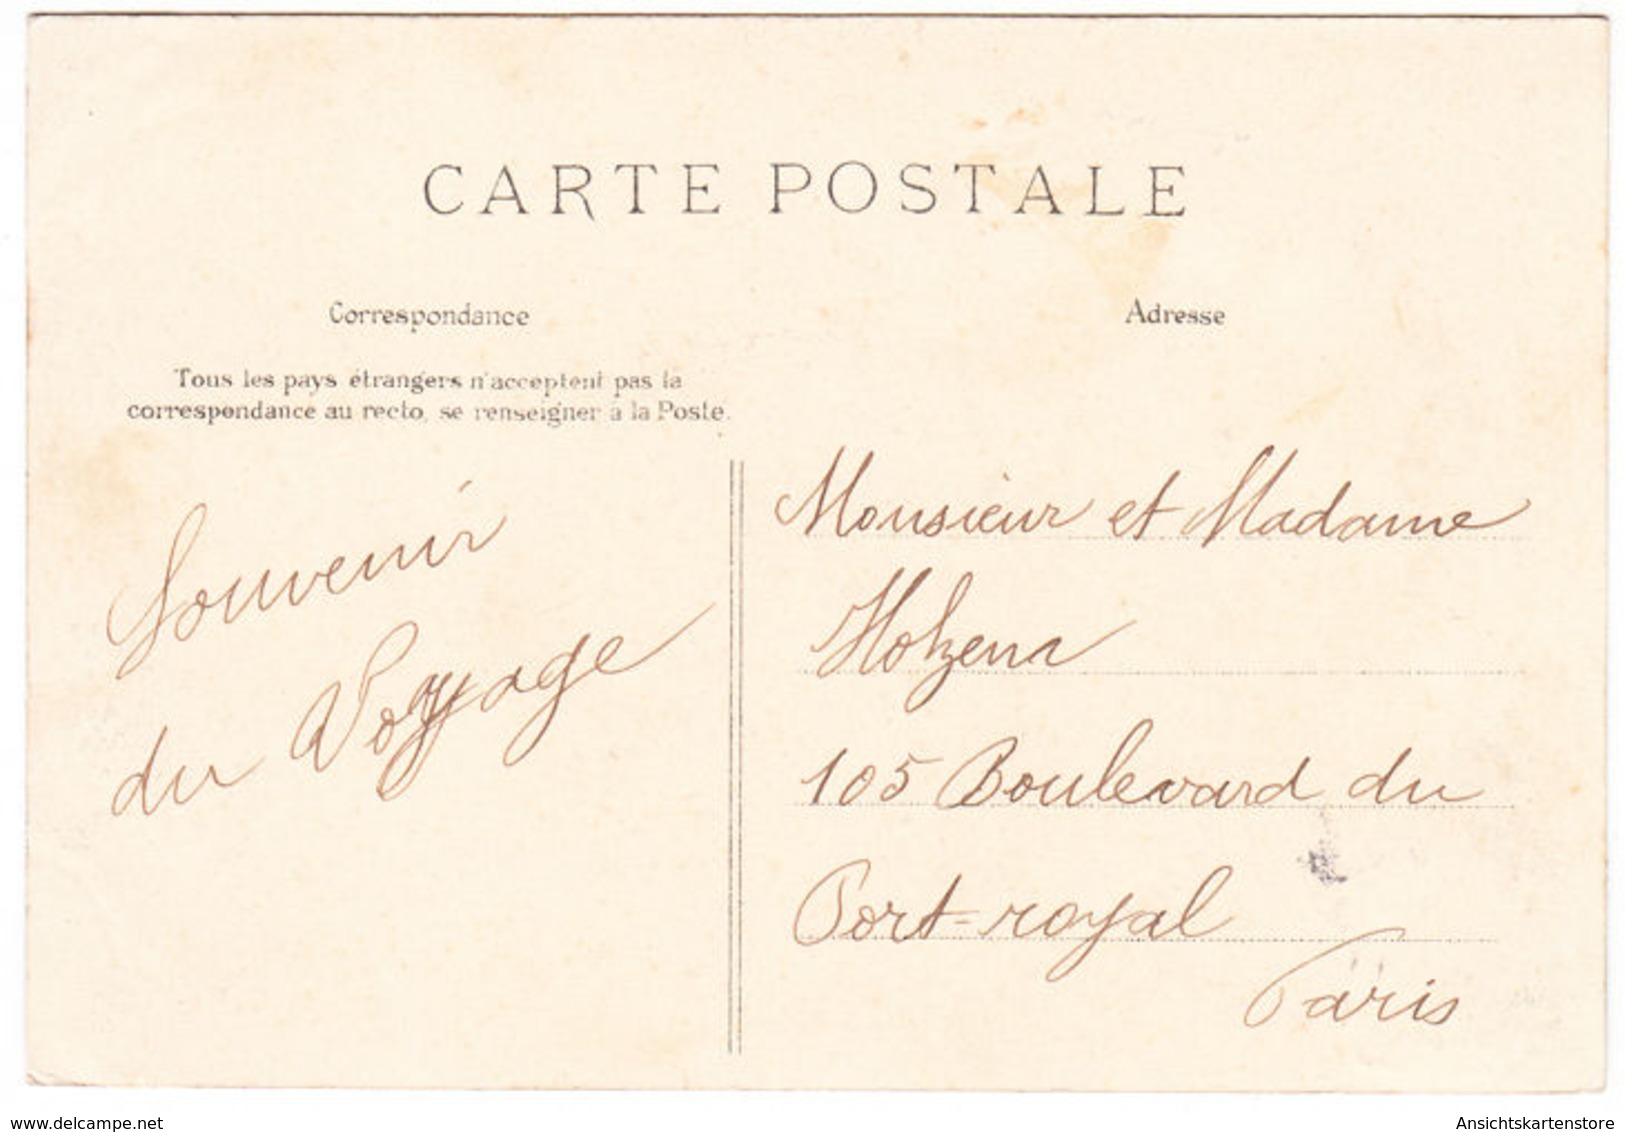 CARTE POSTALE
Correspondance
Tous les pays étrangers n'acceptent pas la
correspondance au recto, se renseigner à la Poste.
Souvenir
du Voyage
Adresse
Monsieur et Madame
105 Boulevard du
Port-royal
Paris
www.delcampe.net
Ansichtskartenstore